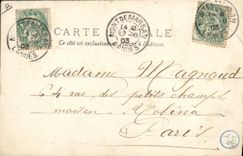 CARTE POSTALE
Ce côté est exclusivement réservé à l'adresse.
MONT-DE-MARSAN
03
LANDES
Madame Magnaud
64 rue des petits champs
maison Molina
Paris